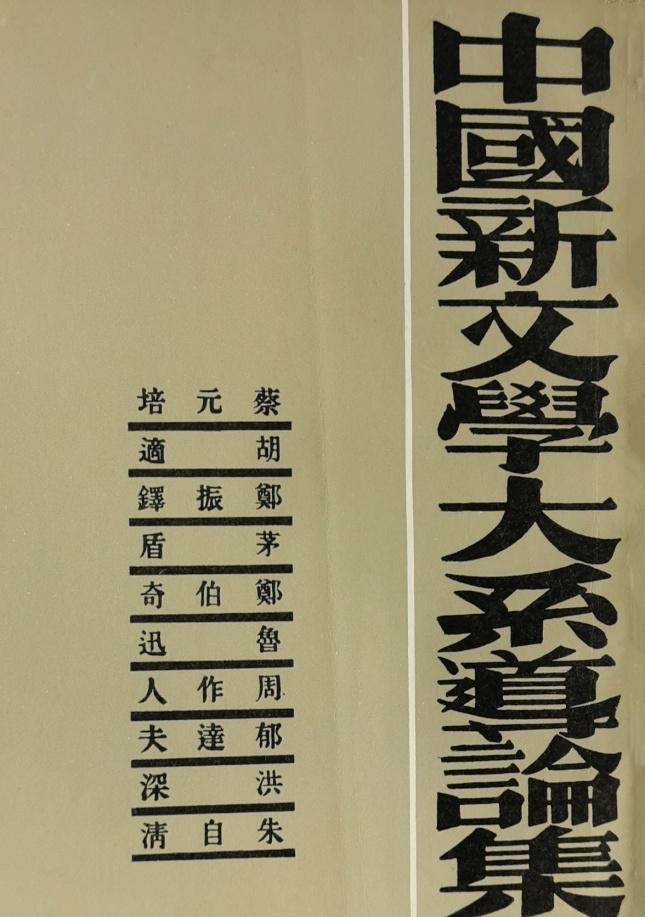 中國新文學大系導論集
蔡元培
胡適
鄭振鐸
茅盾
鄭伯奇
魯迅
周作人
郁達夫
洪深
朱自清